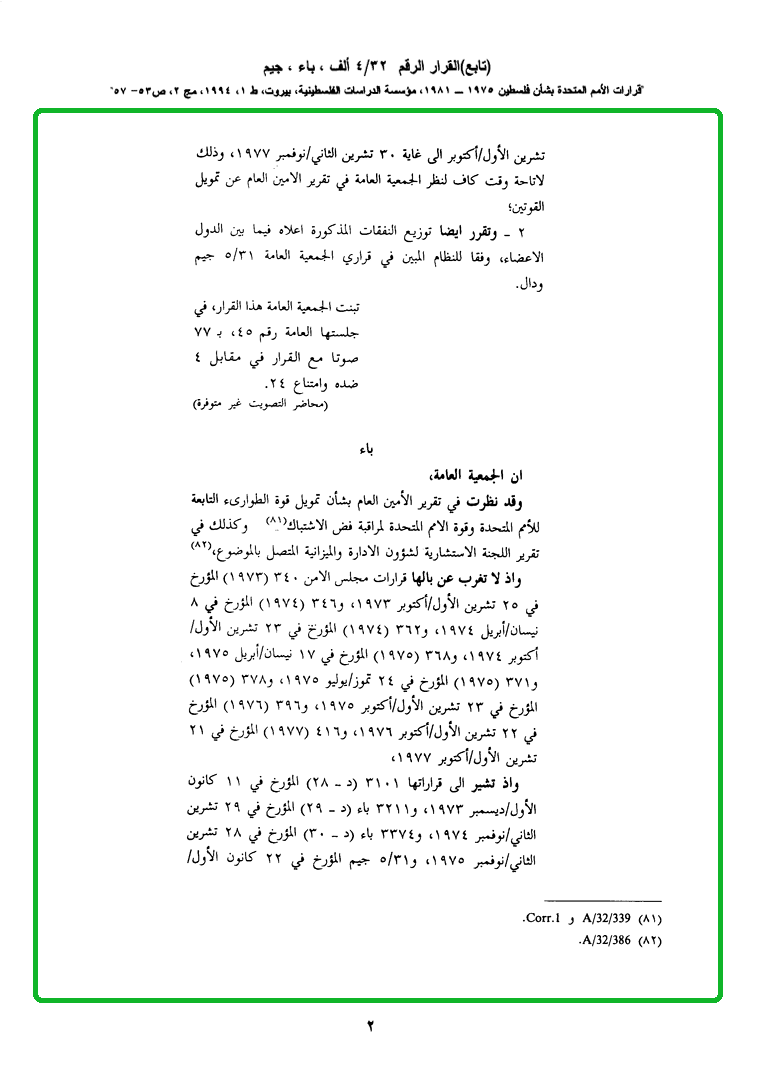 (تابع)القرار الرقم ٤/٣٢ ألف ، باء ، جيم
"قرارات الأمم المتحدة بشأن فلسطين ١٩٧٥ ــ ١٩٨١، مؤسسة الدراسات الفلسطينية، بيروت، ط ١، ١٩٩٤، مج ٢، ص٥٣- ٥٧"
تشرين الأول/أكتوبر الى غاية ٣٠ تشرين الثاني/نوفمبر ١٩٧٧، وذلك
لاتاحة وقت كاف لنظر الجمعية العامة في تقرير الامين العام عن تمويل
القوتين؛
٢ ـ وتقرر ايضا توزيع النفقات المذكورة اعلاه فيما بين الدول
الاعضاء، وفقا للنظام المبين في قراري الجمعية العامة ٥/٣١ جيم
ودال.
تبنت الجمعية العامة هذا القرار، في
جلستها العامة رقم ٤٥، بـ ٧٧
صوتا مع القرار في مقابل ٤
ضده وامتناع ٢٤.
(محاضر التصويت غير متوفرة)
باء
ان الجمعية العامة،
وقد نظرت في تقرير الأمين العام بشأن تمويل قوة الطوارىء التابعة
للأمم المتحدة وقوة الامم المتحدة لمراقبة فض الاشتباك(٨١) وكذلك في
تقرير اللجنة الاستشارية لشؤون الادارة والميزانية المتصل بالموضوع،(٨٢)
واذ لا تغرب عن بالها قرارات مجلس الامن ٣٤٠ (١٩٧٣) المؤرخ
في ٢٥ تشرين الأول/أكتوبر ١٩٧٣، و٣٤٦ (١٩٧٤) المؤرخ في ٨
نيسان/أبريل ١٩٧٤، و٣٦٢ (١٩٧٤) المؤرخ في ٢٣ تشرين الأول/
أكتوبر ١٩٧٤، و٣٦٨ (١٩٧٥) المؤرخ في ١٧ نيسان/أبريل ١٩٧٥،
و٣٧١ (١٩٧٥) المؤرخ في ٢٤ تموز/يوليو ١٩٧٥، و٣٧٨ (١٩٧٥)
المؤرخ في ٢٣ تشرين الأول/أكتوبر ١٩٧٥، و٣٩٦ (١٩٧٦) المؤرخ
في ٢٢ تشرين الأول/أكتوبر ١٩٧٦، و٤١٦ (١٩٧٧) المؤرخ في ٢١
تشرين الأول/أكتوبر ١٩٧٧،
واذ تشير الى قراراتها ٣١٠١ (د ـ ٢٨) المؤرخ في ١١ كانون
الأول/ديسمبر ١٩٧٣، و٣٢١١ باء (د ـ ٢٩) المؤرخ في ٢٩ تشرين
الثاني/نوفمبر ١٩٧٤، و٣٣٧٤ باء (د ـ ٣٠) المؤرخ في ٢٨ تشرين
الثاني/نوفمبر ١٩٧٥، و٥/٣١ جيم المؤرخ في ٢٢ كانون الأول/
(٨١) A/32/339 و Corr.1.
(٨٢) A/32/386.
٢